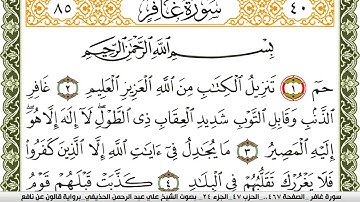 ٤٠ سُورَةُ غَافِر ٨٥
بِسْمِ اللَّهِ الرَّحْمَٰنِ الرَّحِيمِ
حَمٓ ١ تَنزِيلُ الْكِتَٰبِ مِنَ اللَّهِ الْعَزِيزِ الْعَلِيمِ ٢ غَافِرِ
الذَّنۢبِ وَقَابِلِ التَّوْبِ شَدِيدِ الْعِقَابِ ذِى الطَّوْلِ لَآ إِلَٰهَ إِلَّا هُوَ
إِلَيْهِ الْمَصِيرُ ٣ مَا يُجَٰدِلُ فِىٓ ءَايَٰتِ اللَّهِ إِلَّا الَّذِينَ كَفَرُوا
فَلَا يَغْرُرْكَ تَقَلُّبُهُمْ فِى الْبِلَٰدِ ٤ كَذَّبَتْ قَبْلَهُمْ قَوْمُ
سورة غافر _الصفحة ٤٦٧.. الحزب ٤٧ _الجزء ٢٤_ بصوت الشيخ علي عبد الرحمن الحذيفي _برواية قالون عن نافع